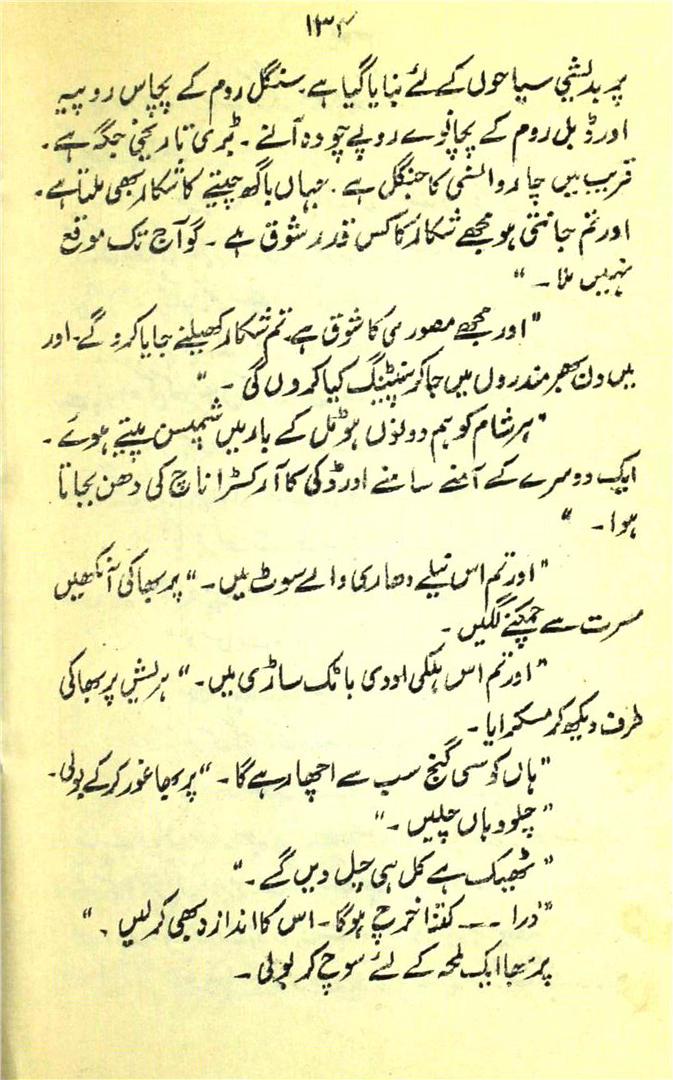 ۱۳۴
پر بدیشی سیاحوں کے لئے بنایا گیا ہے۔ سنگل روم کے پچاس روپیہ
اور ڈبل روم کے پچانوے روپے چودہ آنے۔ بڑی تاریخی جگہ ہے۔
قریب میں کا جنگل ہے۔ جہاں باگھ چیتے کا شکار بھی ملتا ہے۔
اور تم جانتی ہو مجھے شکار کا کس قدر شوق ہے۔ گو آج تک موقع
نہیں ملا۔"
"اور مجھے مصوری کا شوق ہے۔ تم شکار کھیلنے جایا کرو گے۔ اور
میں دن بھر مندروں میں جا کر پینٹنگ کیا کروں گی۔"
"ہر شام کو ہم دونوں ہوٹل کے بار میں شمپین پیتے ہوئے۔
ایک دوسرے کے آمنے سامنے اور ڈکی کا آرکسٹرا ناچ کی دھن بجاتا
ہوا۔"
"اور تم اس نیلے دھاری والے سوٹ میں۔" پربھا کی آنکھیں
مسرت سے چمکنے لگیں۔
"اور تم اس ہلکی اودی باٹک ساڑی میں۔" ہریش پربھا کی
طرف دیکھ کر مسکرایا۔
"ہاں کوسی گنج سب سے اچھا رہے گا۔" پربھا غور کر کے بولی۔
"چلو وہاں چلیں۔"
"ٹھیک ہے کل ہی چل دیں گے۔"
"ذرا -- کتنا خرچ ہوگا۔ اس کا اندازہ بھی کر لیں۔"
پربھا ایک لمحہ کے لئے سوچ کر بولی۔